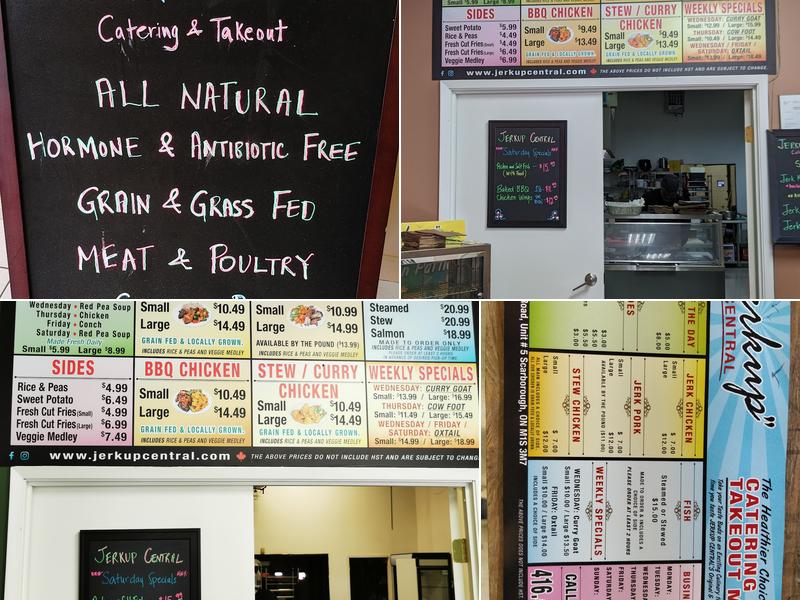 Catering & Takeout
ALL NATURAL
HORMONE & ANTIBIOTIC FREE
GRAIN & GRASS FED
MEAT & POULTRY
Small $5.99 Large $8.99
SIDES
Sweet Potato $5.99
Rice & Peas $4.49
Fresh Cut Fries(Small) $4.49
Fresh Cut Fries(Large) $6.49
Veggie Medley $6.99
BBQ CHICKEN
Small $9.49
Large $13.49
GRAIN FED & LOCALLY GROWN.
INCLUDES RICE & PEAS AND VEGGIE MEDLEY
STEW / CURRY
CHICKEN
Small $9.49
Large $13.49
GRAIN FED & LOCALLY GROWN.
INCLUDES RICE & PEAS AND VEGGIE MEDLEY
WEEKLY SPECIALS
WEDNESDAY: CURRY GOAT
Small: $12.99 / Large: $15.99
THURSDAY: COW FOOT
Small: $10.49 / Large: $14.49
WEDNESDAY / FRIDAY /
SATURDAY: OXTAIL
www.jerkupcentral.com THE ABOVE PRICES DO NOT INCLUDE HST AND ARE SUBJECT TO CHANGE.
JERKUP CENTRAL
Saturday Specials
(With Food)
Baked BBQ
Chicken Wings
Wednesday • Red Pea Soup
Thursday • Chicken
Friday • Conch
Saturday • Red Pea Soup
Made Fresh Daily
Small $5.99 Large $8.99
Small $10.49
Large $14.49
GRAIN FED & LOCALLY GROWN.
INCLUDES RICE & PEAS AND VEGGIE MEDLEY
Small $10.99
Large $14.99
AVAILABLE BY THE POUND ($13.99)
INCLUDES RICE & PEAS AND VEGGIE MEDLEY
Steamed $20.99
Stew $20.99
Salmon $18.99
MADE TO ORDER ONLY
INCLUDES RICE & PEAS AND VEGGIE MEDLEY
SIDES
Rice & Peas $4.99
Sweet Potato $6.49
Fresh Cut Fries(Small) $4.99
Fresh Cut Fries(Large) $6.99
Veggie Medley $7.49
BBQ CHICKEN
Small $10.49
Large $14.49
GRAIN FED & LOCALLY GROWN.
INCLUDES RICE & PEAS AND VEGGIE MEDLEY
STEW / CURRY
CHICKEN
Small $10.49
Large $14.49
GRAIN FED & LOCALLY GROWN.
INCLUDES RICE & PEAS AND VEGGIE MEDLEY
WEEKLY SPECIALS
WEDNESDAY: CURRY GOAT
Small: $13.99 / Large: $16.99
THURSDAY: COW FOOT
Small: $11.49 / Large: $15.49
WEDNESDAY / FRIDAY /
SATURDAY: OXTAIL
Small: $14.99 / Large: $18.99
www.jerkupcentral.com THE ABOVE PRICES DO NOT INCLUDE HST AND ARE SUBJECT TO CHANGE.
JERKUP CENTRAL
Saturday Specials
CENTRAL
The Healthier Choice
CATERING
TAKEOUT
THE DAY
JERK CHICKEN
Small $ 7.00
Large $12.00
FISH
Steamed or Stewed
$15.00
MADE TO ORDER & INCLUDES A
CHOICE OF SIDE
PLEASE ORDER AT LEAST 2 HOURS
JERK PORK
Small $ 7.00
Large $12.00
STEW CHICKEN
Small $ 7.00
Large $12.00
WEEKLY SPECIALS
WEDNESDAY: Curry Goat
Small $10.00 / Large $13.50
FRIDAY: Oxtail
Small $10.00 / Large $14.00
INCLUDES A CHOICE OF SIDE
MONDAY:
TUESDAY:
WEDNESDAY:
THURSDAY:
FRIDAY:
SATURDAY:
SUNDAY:
416.
Road, Unit # 5 Scarborough, ON M1S 3M7